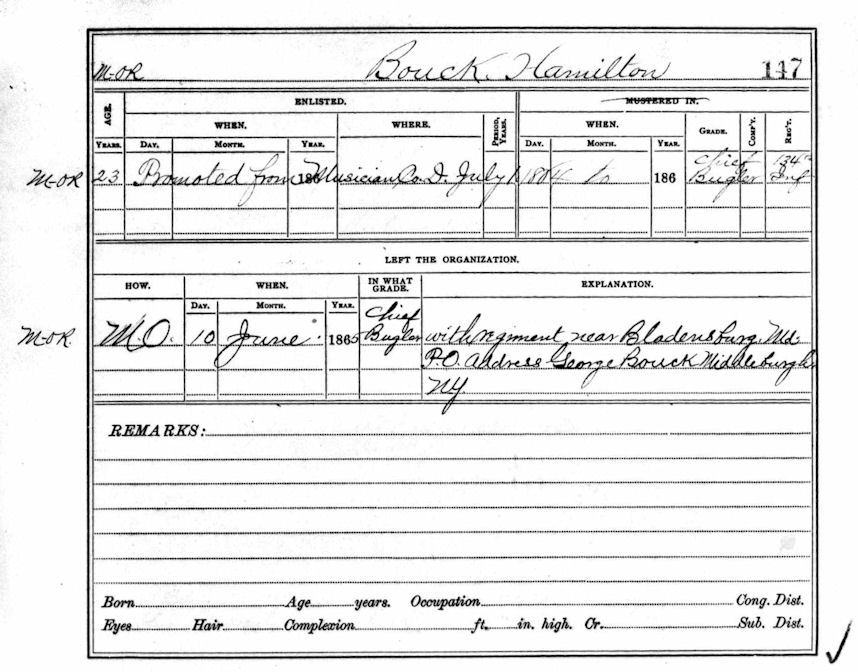 M-OR Bouck, Hamilton 147
ENLISTED. MUSTERED IN.
AGE. WHEN. WHERE. PERIOD, YEARS. WHEN. GRADE. COMP'Y. REG'T.
YEARS. DAY. MONTH. YEAR. DAY. MONTH. YEAR.
M-OR 23 Promoted from 186 Musician Co. D. July 1 1864 to 186 Chief Bugler 134th Inf
LEFT THE ORGANIZATION.
HOW. WHEN. IN WHAT GRADE. EXPLANATION.
DAY. MONTH. YEAR.
M-OR. M.O. 10 June 1865 Chief Bugler with regiment near Bladensburg, Md.
P.O. Address George Bouck Middleburgh
NY
REMARKS:
Born Age years. Occupation Cong. Dist.
Eyes Hair Complexion ft. in. high. Cr. Sub. Dist.